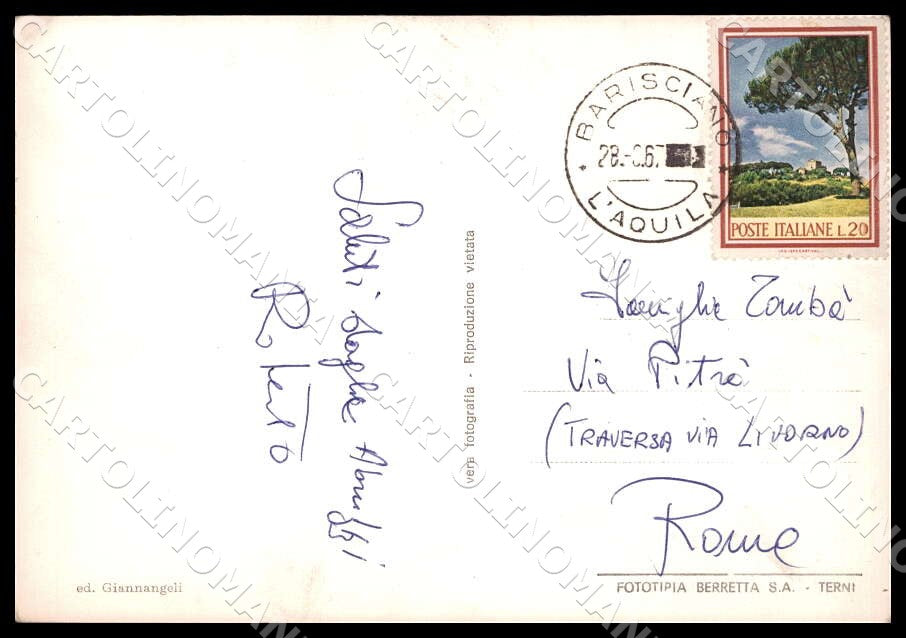 BARISCIANO
28.-8.67
L'AQUILA
POSTE ITALIANE L.20
Saluti dagli Abruzzi
Roberto
vera fotografia - Riproduzione vietata
Famiglia Tombà
Via Pitrè
(TRAVERSA VIA LIVORNO)
Roma
ed. Giannangeli
FOTOTIPIA BERRETTA S.A. - TERNI
CARTOLINOMANIA